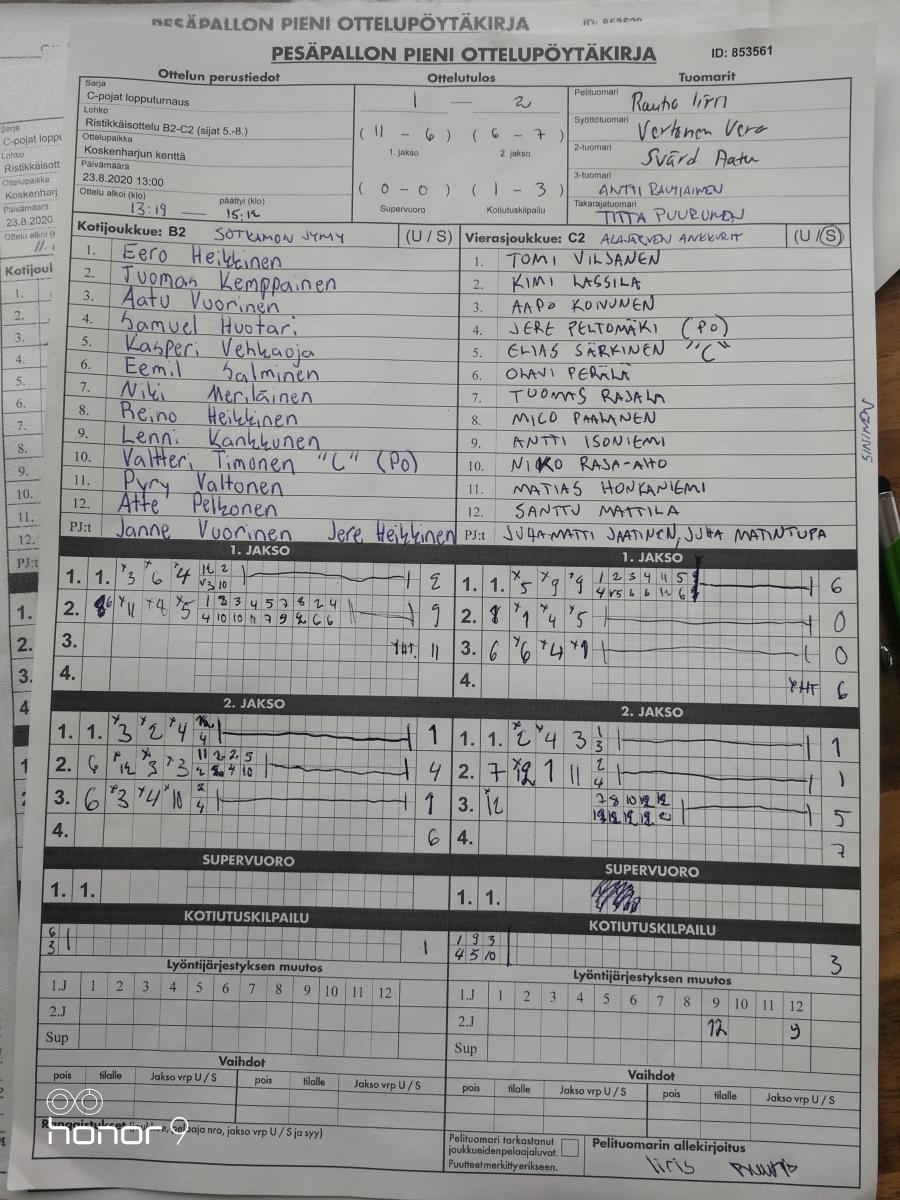 PESÄPALLON PIENI OTTELUPÖYTÄKIRJA
PESÄPALLON PIENI OTTELUPÖYTÄKIRJA ID: 853561
Ottelun perustiedot Ottelutulos Tuomarit
Sarja
C-pojat lopputurnaus
Lohko
Ristikkäisottelu B2-C2 (sijat 5.-8.)
Ottelupaikka
Koskenharjun kenttä
Päivämäärä
23.8.2020 13:00
Ottelu alkoi (klo) päättyi (klo)
13:19 — 15:12
1 — 2
(11 - 6) (6 - 7)
1. jakso 2. jakso
(0 - 0) (1 - 3)
Supervuoro Kotiutuskilpailu
Pelituomari
Rautio Iiris
Syöttötuomari
Vertanen Vera
2-tuomari
Svärd Aatu
3-tuomari
ANTTI RAUTIAINEN
Takarajatuomari
TIITA PUURUNEN
Kotijoukkue: B2 SOTKAMON JYMY (U / S)
1. Eero Heikkinen
2. Juomas Kemppainen
3. Aatu Vuorinen
4. Samuel Huotari
5. Kasperi Vehkaoja
6. Eemil Salminen
7. Niki Meriläinen
8. Reino Heikkinen
9. Lenni Kankkunen
10. Valtteri Timonen "C" (Po)
11. Pyry Valtonen
12. Atte Pelkonen
PJ:t Janne Vuorinen Jere Heikkinen
Vierasjoukkue: C2 ALAJÄRVEN ANKKURIT (U / S)
1. TOMI VILJANEN
2. KIMI LASSILA
3. AAPO KOIVUNEN
4. JERE PELTOMÄKI (PO)
5. ELIAS SÄRKINEN "C"
6. OLAVI PERÄLÄ
7. TUOMAS RAJALA
8. MICO PAALANEN
9. ANTTI ISONIEMI
10. NIKO RAJA-AHO
11. MATIAS HONKANIEMI
12. SANTTU MATTILA
PJ:t JUHA-MATTI JAATINEN, JUHA MATINTUPA
SININEN
1. JAKSO
1. 1. x3 x6 x4 2
2. x11 x8 x5 9
1 8 3 4 5 7 8 2 4
3. YHT. 11
4.
1. JAKSO
1. 1. x5 x9 x9 6
1 2 3 4 11 5
2. 8 x1 x4 x5 0
3. 6 x6 x4 x1 0
4. YHT 6
2. JAKSO
1. 1. x3 x2 x4 1
2. 6 x12 x3 x3 4
11 2 2 5
3. 6 x3 x4 x10 1
2
4
4. 6
2. JAKSO
1. 1. x2 x4 3 1
1
3
2. 7 x12 1 11 1
2
4
3. x12 5
7 8 10 12 12
4. 7
SUPERVUORO
1. 1.
SUPERVUORO
1. 1.
KOTIUTUSKILPAILU
6 1
3
KOTIUTUSKILPAILU
1 9 3 3
4 5 10
Lyöntijärjestyksen muutos
1.J 1 2 3 4 5 6 7 8 9 10 11 12
2.J
Sup
Lyöntijärjestyksen muutos
1.J 1 2 3 4 5 6 7 8 9 10 11 12
2.J 12 9
Sup
Vaihdot
pois tilalle Jakso vrp U / S pois tilalle Jakso vrp U / S
Vaihdot
pois tilalle Jakso vrp U / S pois tilalle Jakso vrp U / S
Rangaistukset (joukkue, pelaaja nro, jakso vrp U / S ja syy)
Pelituomari tarkastanut
joukkueiden pelaajaluvat.
Puutteet merkitty erikseen.
Pelituomarin allekirjoitus
Iiris Rautio
honor 9